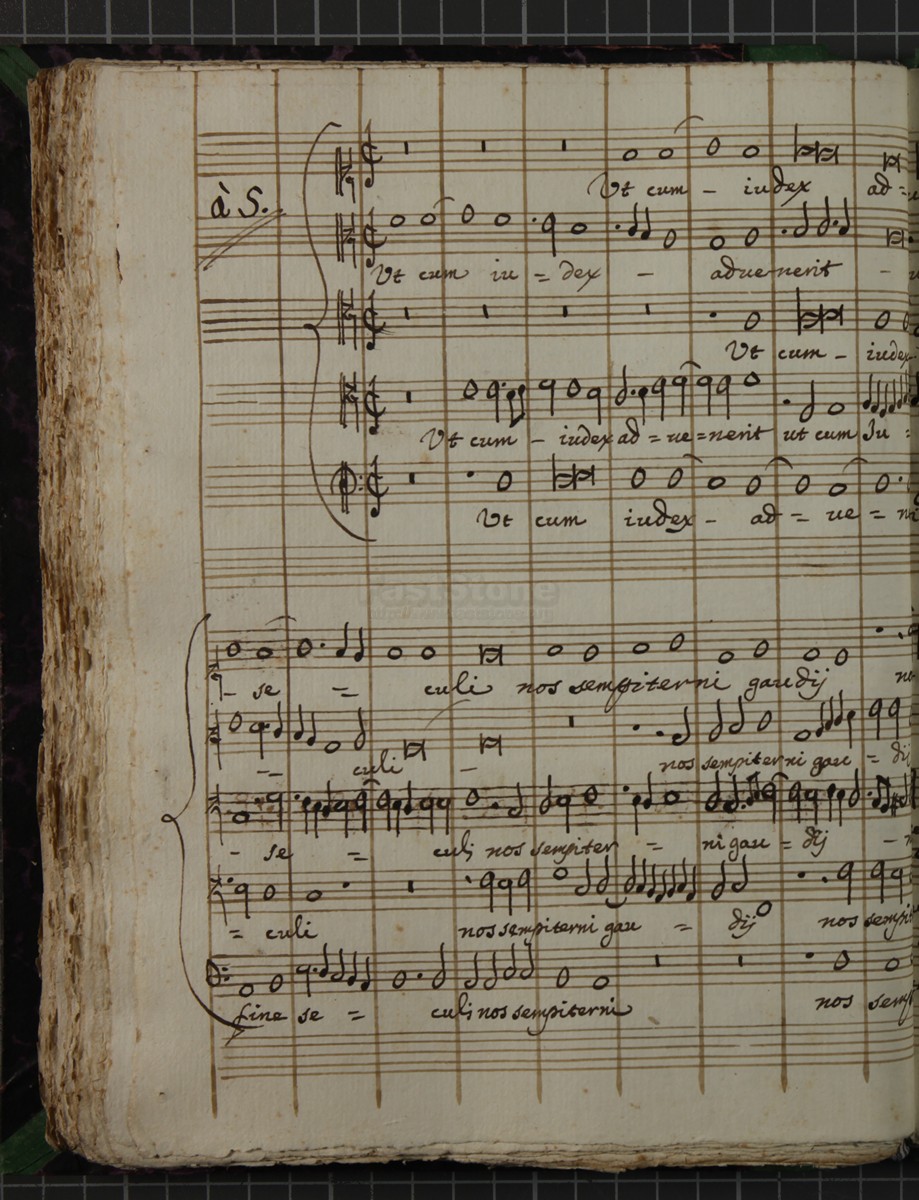 à 5.
Ut cum - iudex ad=
Ut cum iu = dex - aduenerit -
Ut cum - iudex
Ut cum - iudex ad = ue = nerit ut cum Iu =
Ut cum iudex - ad = ue = ni
FastStone
- se = culi nos sempiterni gaudij no
-- culi - nos sempiterni gau = dij
- se = culi nos sempiter = ni gau = dij -
= culi nos sempiterni gau = dij nos sempit
sine se = culi nos sempiterni nos semp